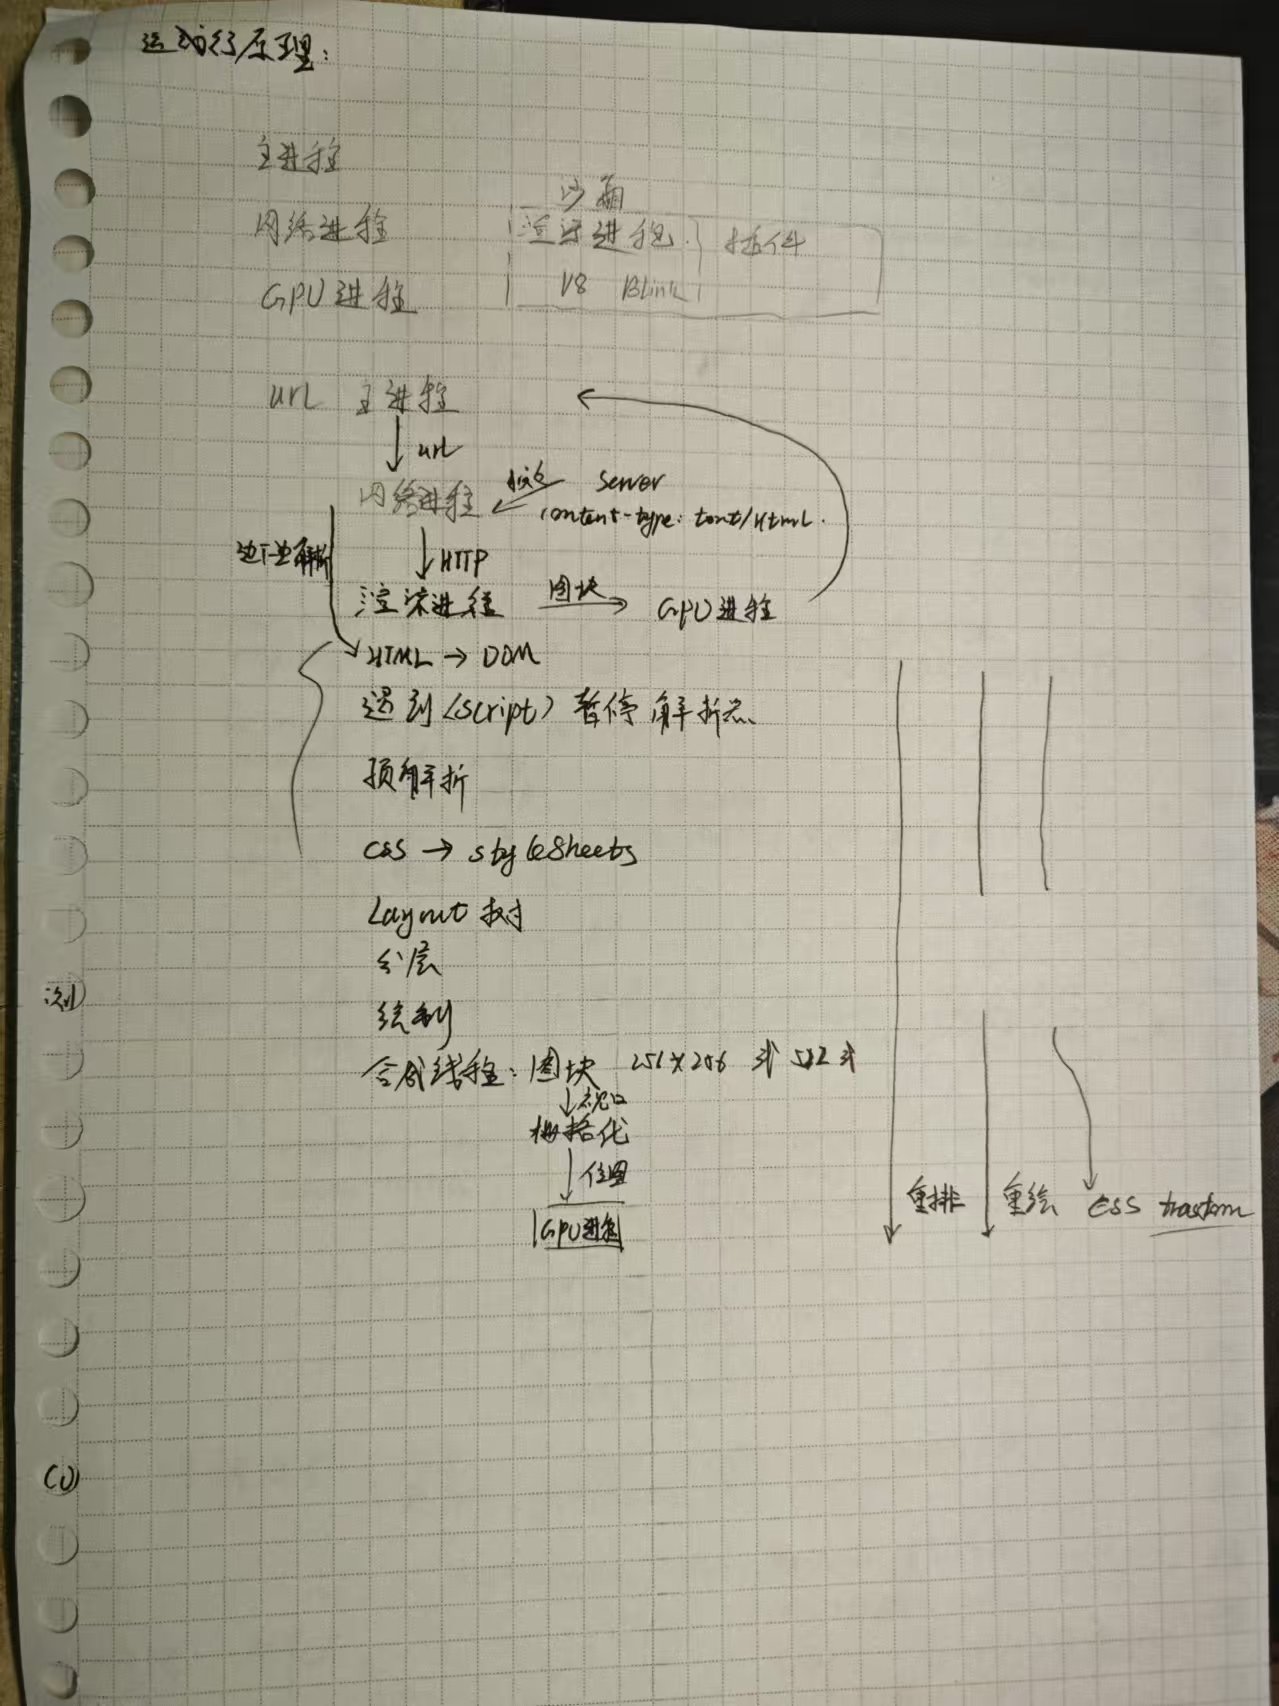 运行原理:
主进程
沙箱
网络进程 渲染进程 插件
GPU进程 V8 Blink
url 主进程
↓ url
网络进程 ← Server
content-type: text/html.
边下边解析 ↓ HTTP
渲染进程 图块 → GPU进程
HTML → DOM
遇到<script> 暂停解析
预解析
css → styleSheets
Layout 树
分层
浏
绘制
合成线程: 图块 256×256 或 512
↓ 视口
栅格化
↓ 位图
GPU进程
重排 重绘 CSS
(1)